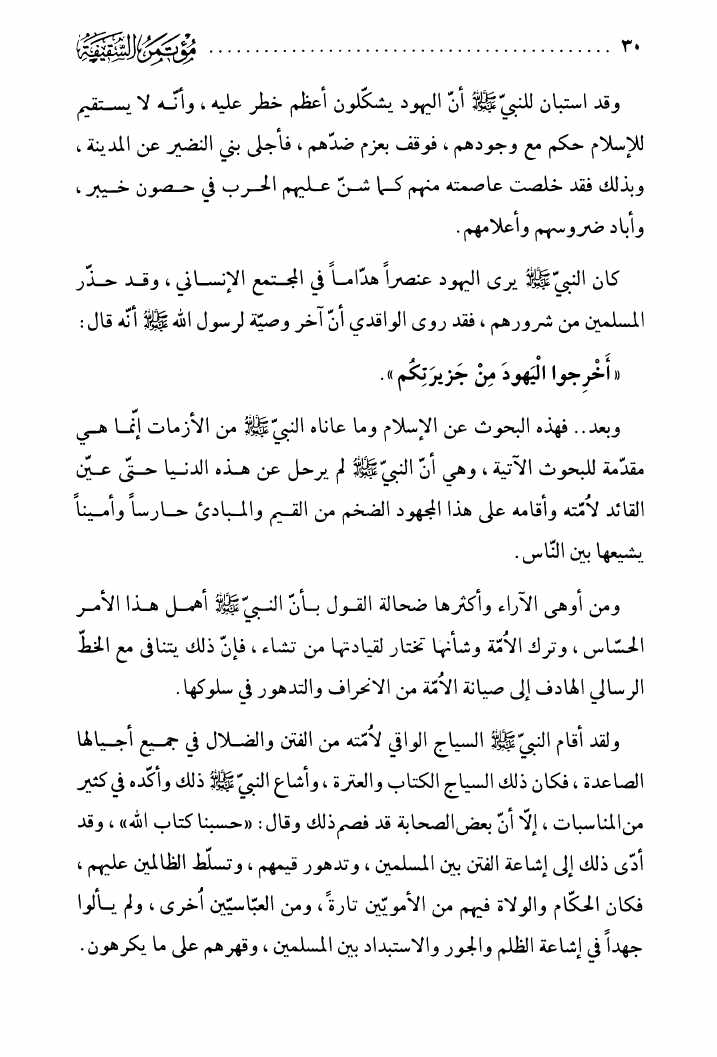 ٣٠ ........................................ مؤتمر السقيفة
وقد استبان للنبيّ ﷺ أنّ اليهود يشكّلون أعظم خطر عليه ، وأنّه لا يستقيم
للإسلام حكم مع وجودهم ، فوقف بعزم ضدّهم ، فأجلى بني النضير عن المدينة ،
وبذلك فقد خلصت عاصمته منهم كما شنّ عليهم الحرب في حصون خيبر ،
وأباد ضروسهم وأعلامهم.
كان النبيّ ﷺ يرى اليهود عنصراً هدّاماً في المجتمع الإنساني ، وقد حذّر
المسلمين من شرورهم ، فقد روى الواقدي أنّ آخر وصيّة لرسول الله ﷺ أنّه قال:
«أَخْرِجوا الْيَهودَ مِنْ جَزيرَتِكُم».
وبعد.. فهذه البحوث عن الإسلام وما عاناه النبيّ ﷺ من الأزمات إنّما هي
مقدّمة للبحوث الآتية ، وهي أنّ النبيّ ﷺ لم يرحل عن هذه الدنيا حتّى عيّن
القائد لأُمّته وأقامه على هذا المجهود الضخم من القيم والمبادئ حارساً وأميناً
يشيعها بين النّاس.
ومن أوهى الآراء وأكثرها ضحالة القول بأنّ النبيّ ﷺ أهمل هذا الأمر
الحسّاس ، وترك الاُمّة وشأنها تختار لقيادتها من تشاء ، فإنّ ذلك يتنافى مع الخطّ
الرسالي الهادف إلى صيانة الاُمّة من الانحراف والتدهور في سلوكها.
ولقد أقام النبيّ ﷺ السياج الواقي لاُمّته من الفتن والضلال في جميع أجيالها
الصاعدة ، فكان ذلك السياج الكتاب والعترة ، وأشاع النبيّ ﷺ ذلك وأكّده في كثير
من المناسبات ، إلّا أنّ بعض الصحابة قد فصم ذلك وقال: «حسبنا كتاب الله» ، وقد
أدّى ذلك إلى إشاعة الفتن بين المسلمين ، وتدهور قيمهم ، وتسلّط الظالمين عليهم ،
فكان الحكّام والولاة فيهم من الأمويّين تارةً ، ومن العبّاسيّين اُخرى ، ولم يألوا
جهداً في إشاعة الظلم والجور والاستبداد بين المسلمين ، وقهرهم على ما يكرهون.